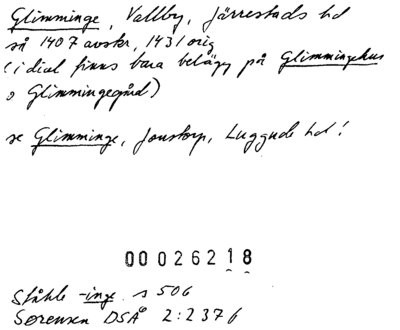 Glimminge, Vallby, Järrestads hd
så 1407 avskr, 1431 orig
(i dial finns bara belägg på Glimmingehus
o Glimmingegård)
se Glimminge, Jonstorp, Luggude hd!
00026218
Ståhle -inge s 506
Sørensen DSÅ 2:237 f